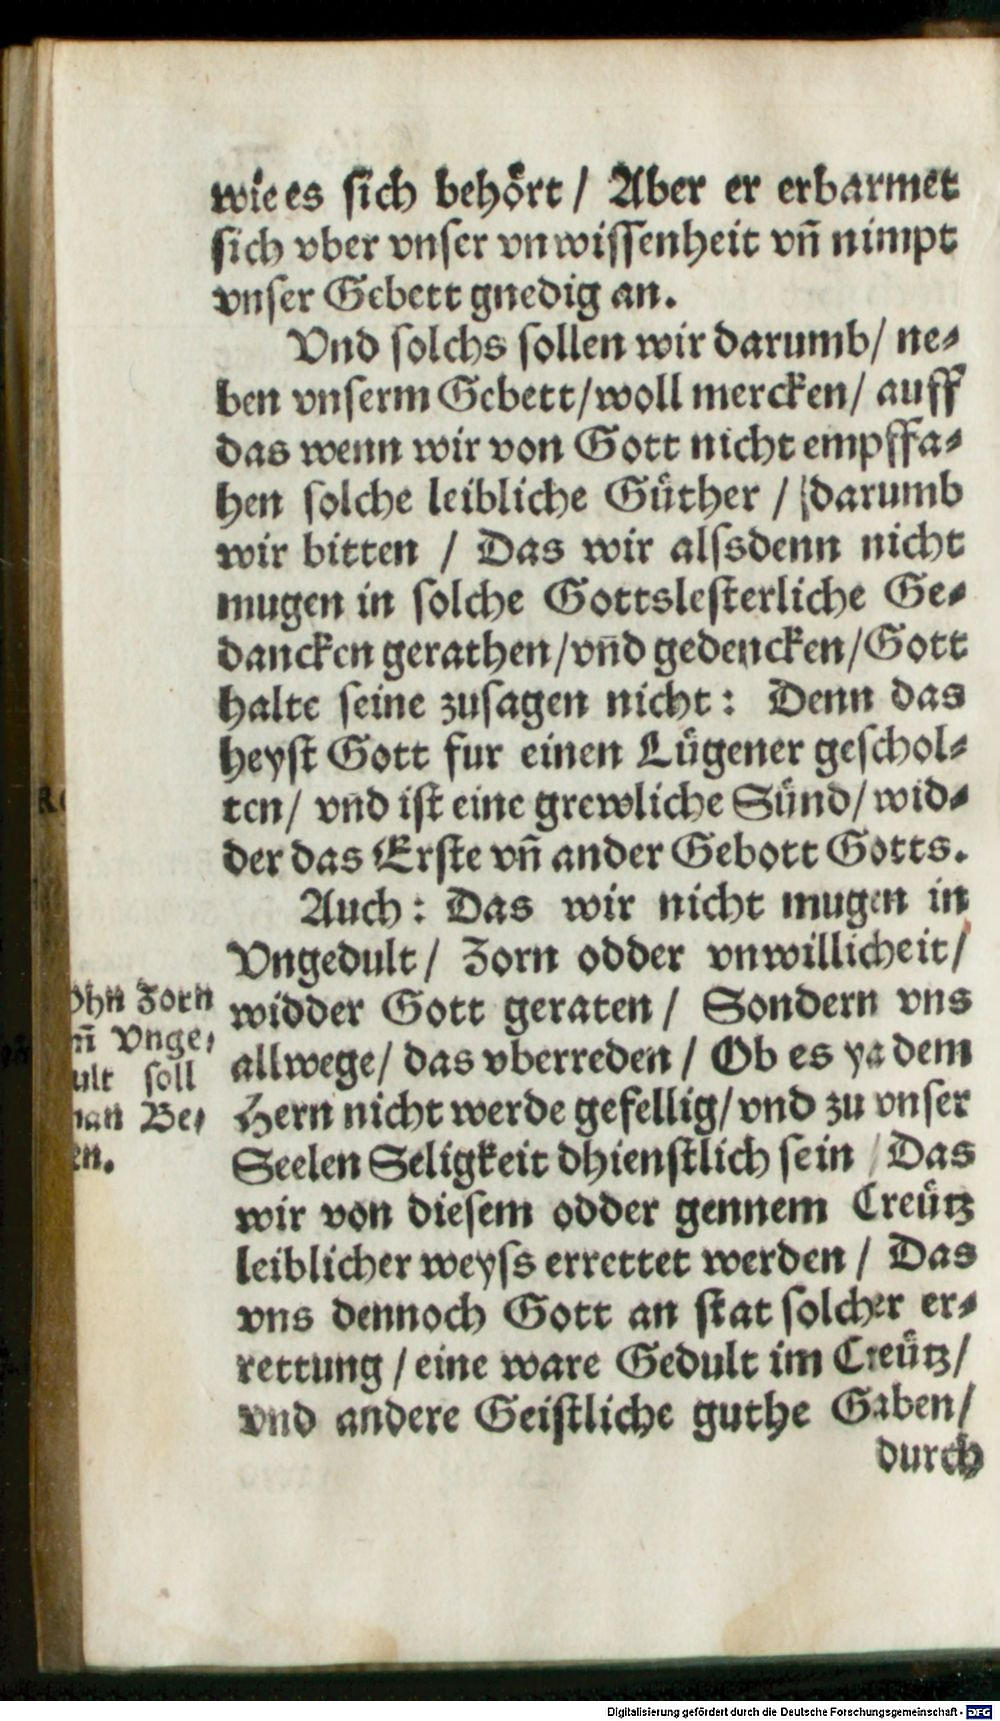 wie es sich behört / Aber er erbarmet
sich vber vnser vnwissenheit vn̄ nimpt
vnser Gebett gnedig an.
Vnd solchs sollen wir darumb / ne⸗
ben vnserm Gebett / woll mercken / auff
das wenn wir von Gott nicht empffa⸗
hen solche leibliche Güther / darumb
wir bitten / Das wir alssdenn nicht
mugen in solche Gottslesterliche Ge⸗
dancken gerathen / vn̄d gedencken / Gott
halte seine zusagen nicht: Denn das
heyst Gott fur einen Lügener geschol⸗
ten / vn̄d ist eine grewliche Sünd / wid⸗
der das Erste vn̄ ander Gebott Gotts.
Auch: Das wir nicht mugen in
Vngedult / Zorn odder vnwillicheit /
widder Gott geraten / Sondern vns
allwege / das vberreden / Ob es ya dem
Hern nicht werde gefellig / vnd zu vnser
Seelen Seligkeit dhienstlich sein / Das
wir von diesem odder gennem Creütz
leiblicher weyss errettet werden / Das
vns dennoch Gott an stat solcher er⸗
rettung / eine ware Gedult im Creütz /
vnd andere Geistliche guthe Gaben /
durch
ohn Zorn
n̄ Vnge⸗
ult soll
man Be⸗
en.
Digitalisierung gefördert durch die Deutsche Forschungsgemeinschaft - DFG